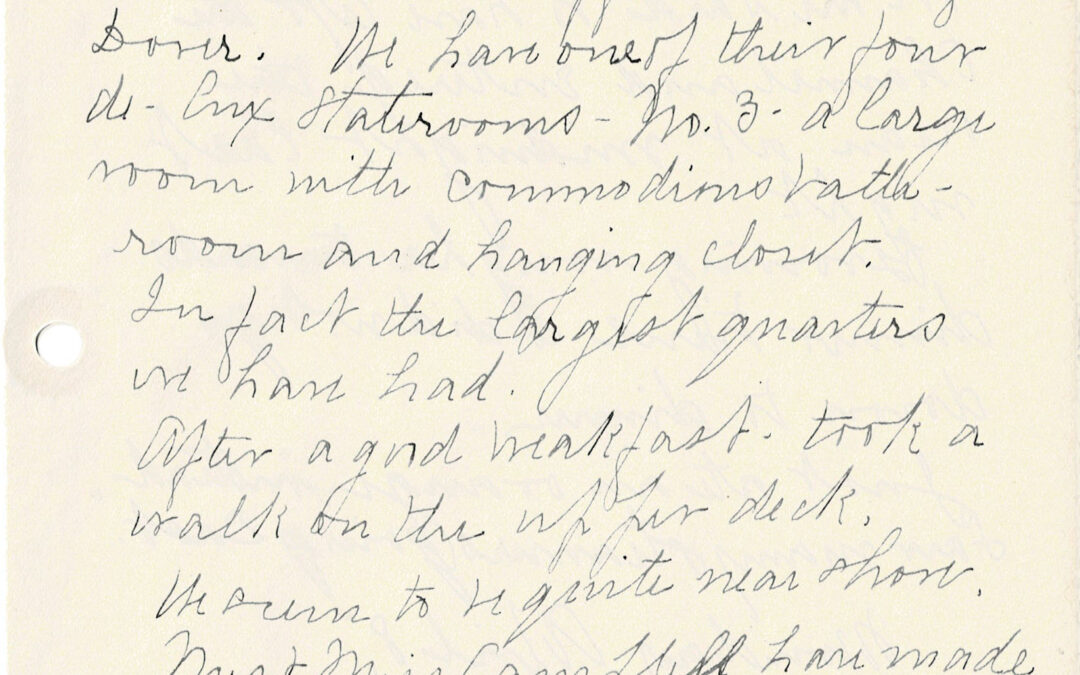 Dover. We have one of their four
de-lux Staterooms - No. 3 - a large
room with commodious bath-
room and hanging closet.
In fact the largest quarters
we have had.
After a good breakfast - took a
walk on the upper deck.
We seem to be quite near shore.
have made